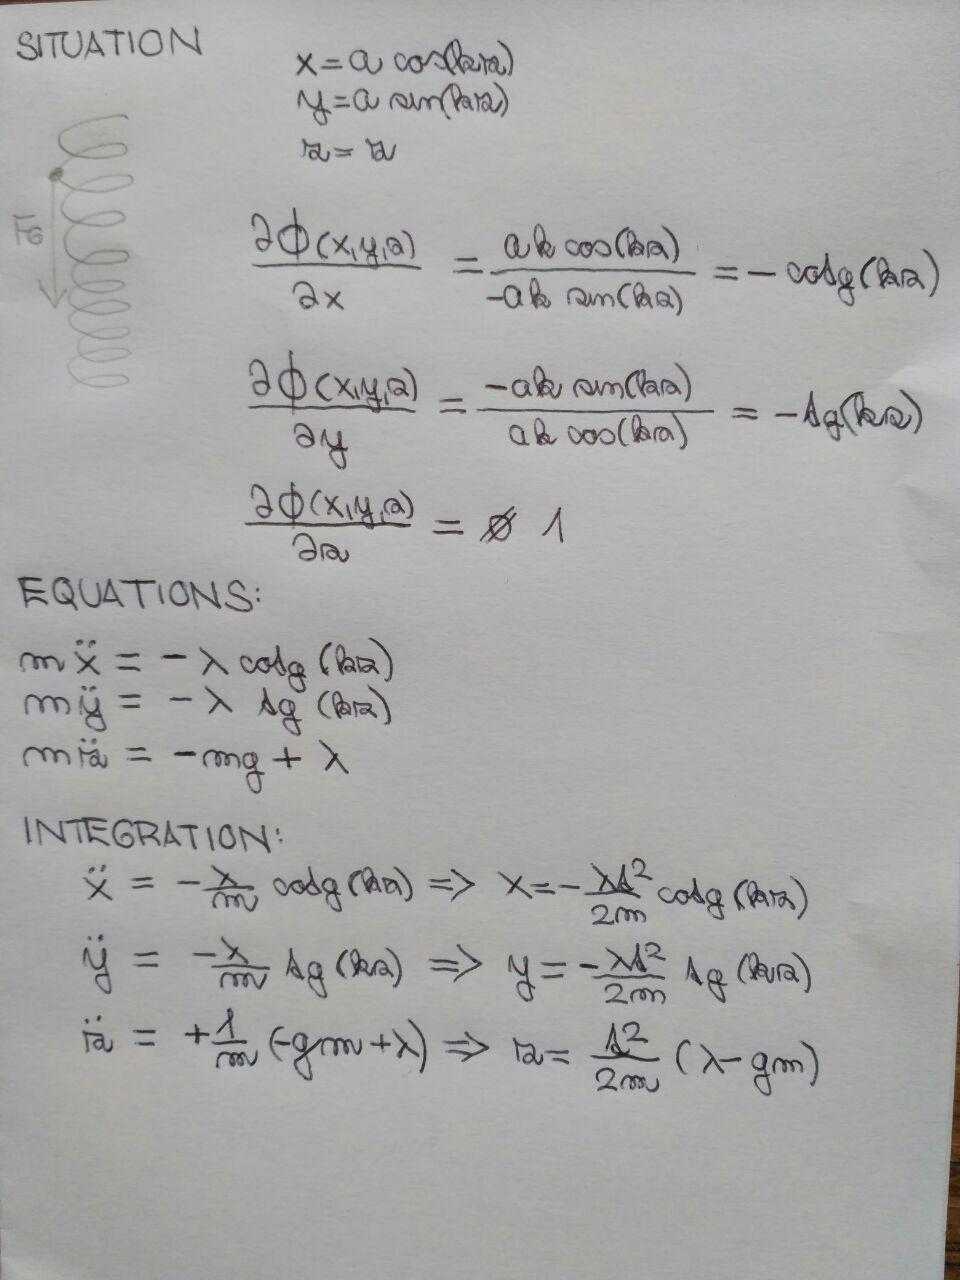 SITUATION
x = a cos(kz)
y = a sin(kz)
z = z
FG
∂ϕ(x,y,z)/∂x = ak cos(kz)/-ak sin(kz) = - cotg(kz)
∂ϕ(x,y,z)/∂y = -ak sin(kz)/ak cos(kz) = -tg(kz)
∂ϕ(x,y,z)/∂z = 1
EQUATIONS:
mẍ = -λ cotg(kz)
mÿ = -λ tg(kz)
mz̈ = -mg + λ
INTEGRATION:
ẍ = -λ/m cotg(kz) => x = -λt²/2m cotg(kz)
ÿ = -λ/m tg(kz) => y = -λt²/2m tg(kz)
z̈ = +1/m (-gm+λ) => z = t²/2m (λ-gm)